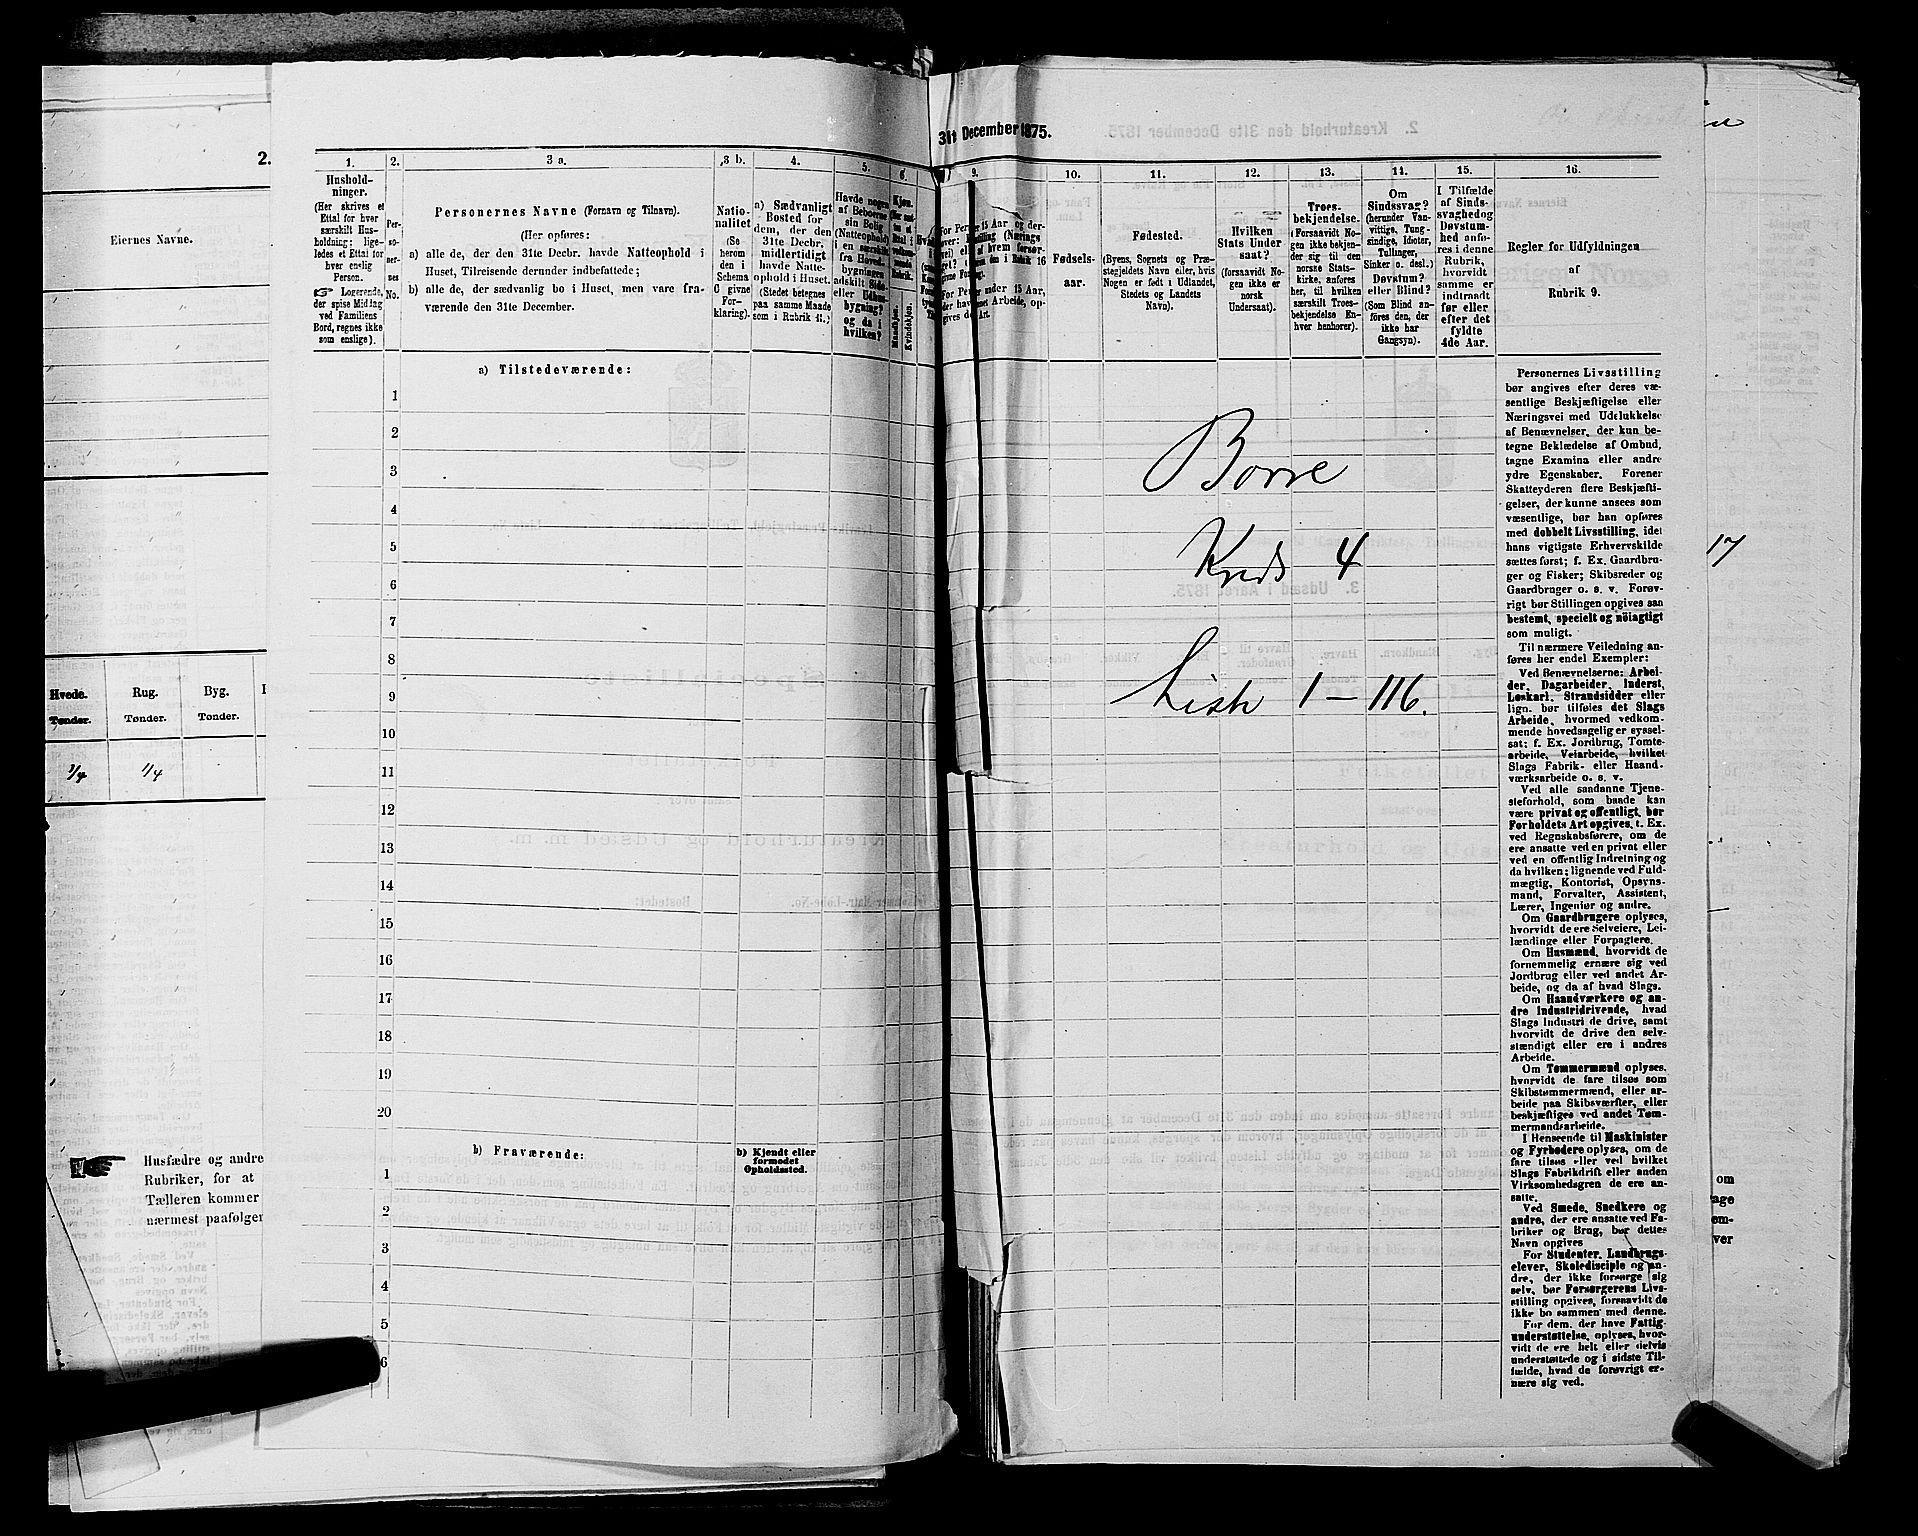 2.
Eiernes Navne.
Hvede.
Rug.
Byg.
Tønder.
Tønder.
Tønder.
1/4
1/4
Husfædre og andre
Rubriker, for at
Tælleren kommer
nærmest paafølger
31t December 1875.
1.
2.
3 a.
3 b.
4.
5.
6.
Hushold-
ninger.
(Her skrives et
Ettal for hver
særskilt Hus-
holdning; lige-
ledes et Ettal for
hver enslig
Person.
Logerende,
der spise Middag
ved Familiens
Bord, regnes ikke
som enslige).
Per-
so-
ner-
nes
No.
Personernes Navne (Fornavn og Tilnavn).
(Her opføres:
a) alle de, der den 31te Decbr. havde Natteophold i
Huset, Tilreisende derunder indbefattede;
b) alle de, der sædvanlig bo i Huset, men vare fra-
værende den 31te December.
Natio-
nalitet
(Se
herom
den i
Schema
C givne
For-
klaring).
a) Sædvanligt
Bosted for
dem, der den
31te Decbr.
midlertidigt
havde Natte-
ophold i Huset.
(Stedet betegnes
paa samme Maade
som i Rubrik 11.)
Havde nogen
af Beboerne
sin Bolig
(Natteophold)
i en særskilt
fra Hoved-
bygningen
adskilt Side-
eller Udhus-
bygning?
og da i
hvilken?
Kjøn.
Mandkjøn.
Kvindekjøn.
a) Tilstedeværende:
1
2
3
4
5
6
7
8
9
10
11
12
13
14
15
16
17
18
19
20
b) Fraværende:
b) Kjendt eller
formodet
Opholdssted.
1
2
3
4
5
6
9.
10.
11.
12.
13.
14.
15.
16.
Fødsels-
aar.
Fødested.
(Byens, Sognets og Præ-
stegjeldets Navn eller, hvis
Nogen er født i Udlandet,
Stedets og Landets
Navn).
Hvilken
Stats Under-
saat?
(forsaavidt No-
gen ikke er
norsk
Undersaat).
Troes-
bekjendelse.
(Forsaavidt No-
gen ikke bekjen-
der sig til den
norske Stats-
kirke, anføres
her, til hvilken
særskilt Troes-
bekjendelse En-
hver henhører).
Om
Sindssvag?
(herunder Van-
vittige, Tung-
sindige, Idioter,
Tullinger,
Sinker o. desl.)
Døvstum?
eller Blind?
(Som Blind an-
føres den, der
ikke har
Gangsyn).
I Tilfælde
af Sinds-
svaghed og
Døvstum-
hed anfø-
res i denne
Rubrik,
hvorvidt
samme er
indtraadt
før eller
efter det
fyldte
4de Aar.
Regler for Udfyldningen
af
Rubrik 9.
Borre
Kreds 4
Liste 1 – 116.
Personernes Livsstilling
bør angives efter deres væ-
sentlige Beskjæftigelse eller
Næringsvei med Udelukkelse
af Benævnelser, der kun be-
tegne Beklædelse af Ombud,
tagne Examina eller andre
ydre Egenskaber. Forener
Skatteyderen flere Beskjæfti-
gelser, der kunne ansees som
væsentlige, bør han opføres
med dobbelt Livsstilling, idet
hans vigtigste Erhvervskilde
sættes først; f. Ex. Gaardbru-
ger og Fisker; Skibsreder og
Gaardbruger o. s. v. Forøv-
rigt bør Stillingen opgives saa
bestemt, specielt og nöiagtigt
som muligt.
Til nærmere Veiledning an-
føres her endel Exempler:
Ved Benævnelserne: Arbei-
der, Dagarbeider, Inderst,
Løskarl, Strandsidder eller
lign. bør tilføies det Slags
Arbeide, hvormed vedkom-
mende hovedsagelig er syssel-
sat; f. Ex. Jordbrug, Tomte-
arbeide, Veiarbeide, hvilket
Slags Fabrik- eller Haand-
værksarbeide o. s. v.
Ved alle saadanne Tjene-
steforhold, som baade kan
være privat og offentligt, bør
Forholdets Art opgives, t. Ex.
ved Regnskabsførere, om de
ere ansatte ved en privat eller
ved en offentlig Indretning og
da hvilken; lignende ved Fuld-
mægtig, Kontorist, Opsyns-
mand, Forvalter, Assistent,
Lærer, Ingeniør og andre.
Om Gaardbrugere oplyses,
hvorvidt de ere Selveiere, Lei-
lændinge eller Forpagtere.
Om Husmænd, hvorvidt de
fornemmelig ernære sig ved
Jordbrug eller ved andet Ar-
beide, og da af hvad Slags.
Om Haandværkere og an-
dre Industridrivende, hvad
Slags Industri de drive, samt
hvorvidt de drive den selv-
stændigt eller ere i andres
Arbeide.
Om Tømmermænd oplyses,
hvorvidt de fare tilsøs som
Skibstømmermænd, eller ar-
beide paa Skibsværfter, eller
beskjæftiges ved andet Tøm-
mermandsarbeide.
I Henseende til Maskinister
og Fyrbødere oplyses, om de
fare tilsøs eller ved hvilket
Slags Fabrikdrift eller anden
Virksomhedsgren de ere an-
satte.
Ved Smede, Snedkere og
andre, der ere ansatte ved Fa-
briker og Brug, bør dettes
Navn opgives
For Studenter, Landbrugs-
elever, Skoledisciple og an-
dre, der ikke forsørge sig
selv, bør Forsørgerens Livs-
stilling opgives, forsaavidt de
ikke bo sammen med denne.
For dem, der have Fattig-
understøttelse, oplyses, hvor-
vidt de ere helt eller delvis
understøttede og i sidste Til-
fælde, hvad de forøvrigt er-
nære sig ved.
17
om